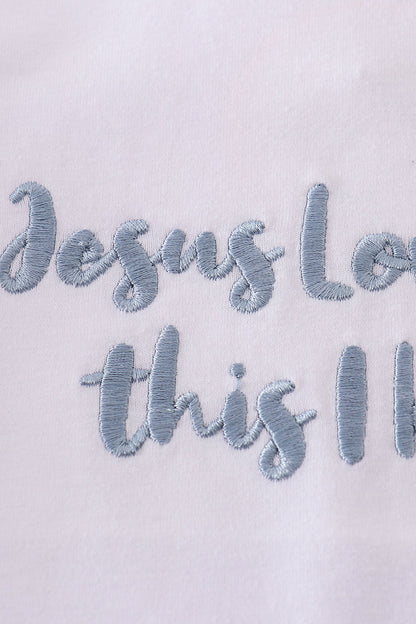 Jesus Lo
this I